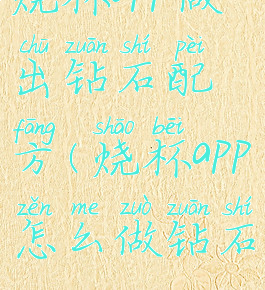 烧杯app做
chū zuān shí pèi
出钻石配
fāng shāo bēi
方(烧杯app
zěn me zuò zuān shí
怎么做钻石